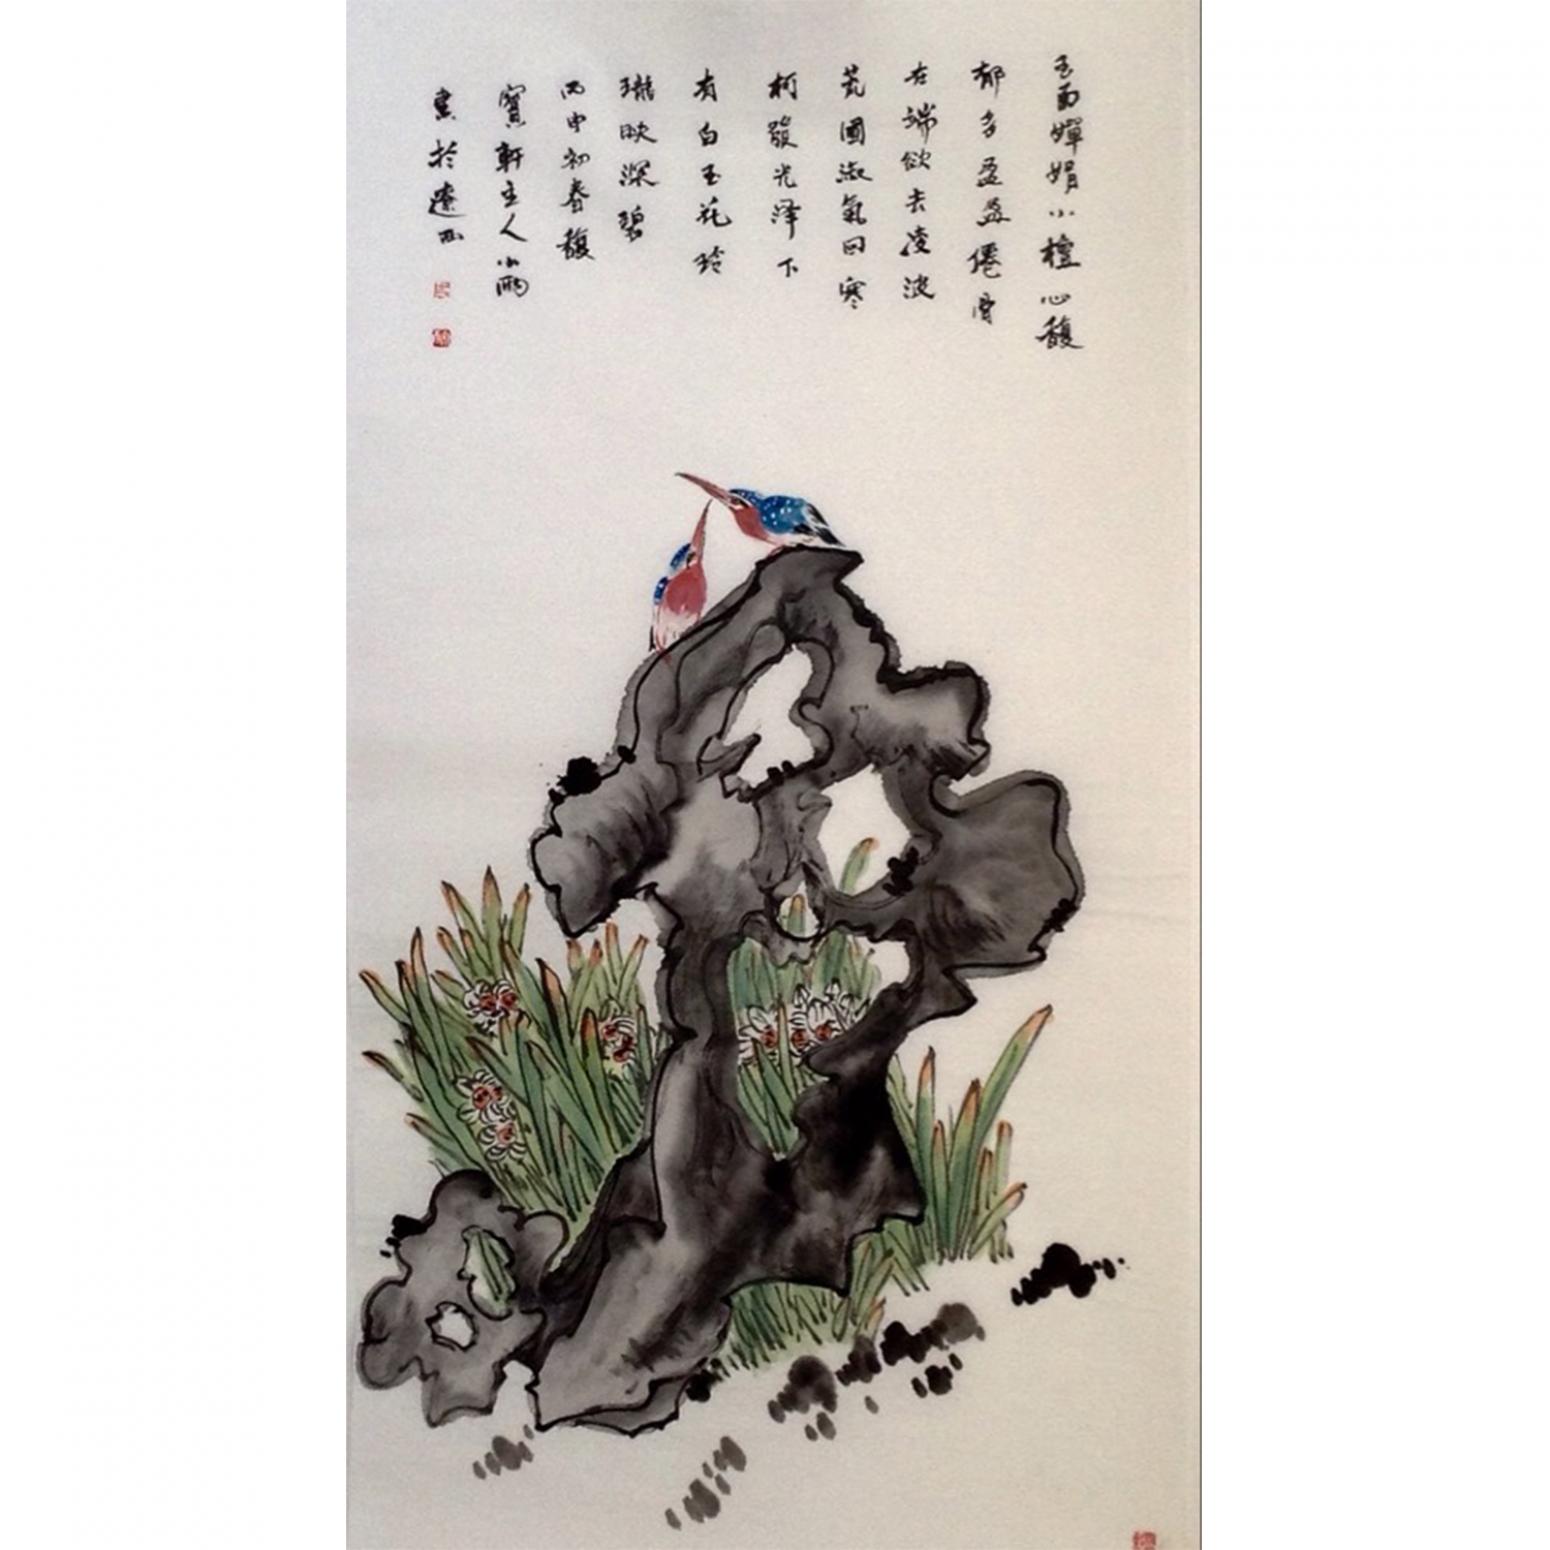 玉面嬋娟小檀心馥
郁多盈盈僊骨
在端欲去凌波
荒園淑氣回寒
柯發光澤下
有白玉花玲
瓏映深碧
丙申初春馥
寶軒主人小雨
畫於遼西